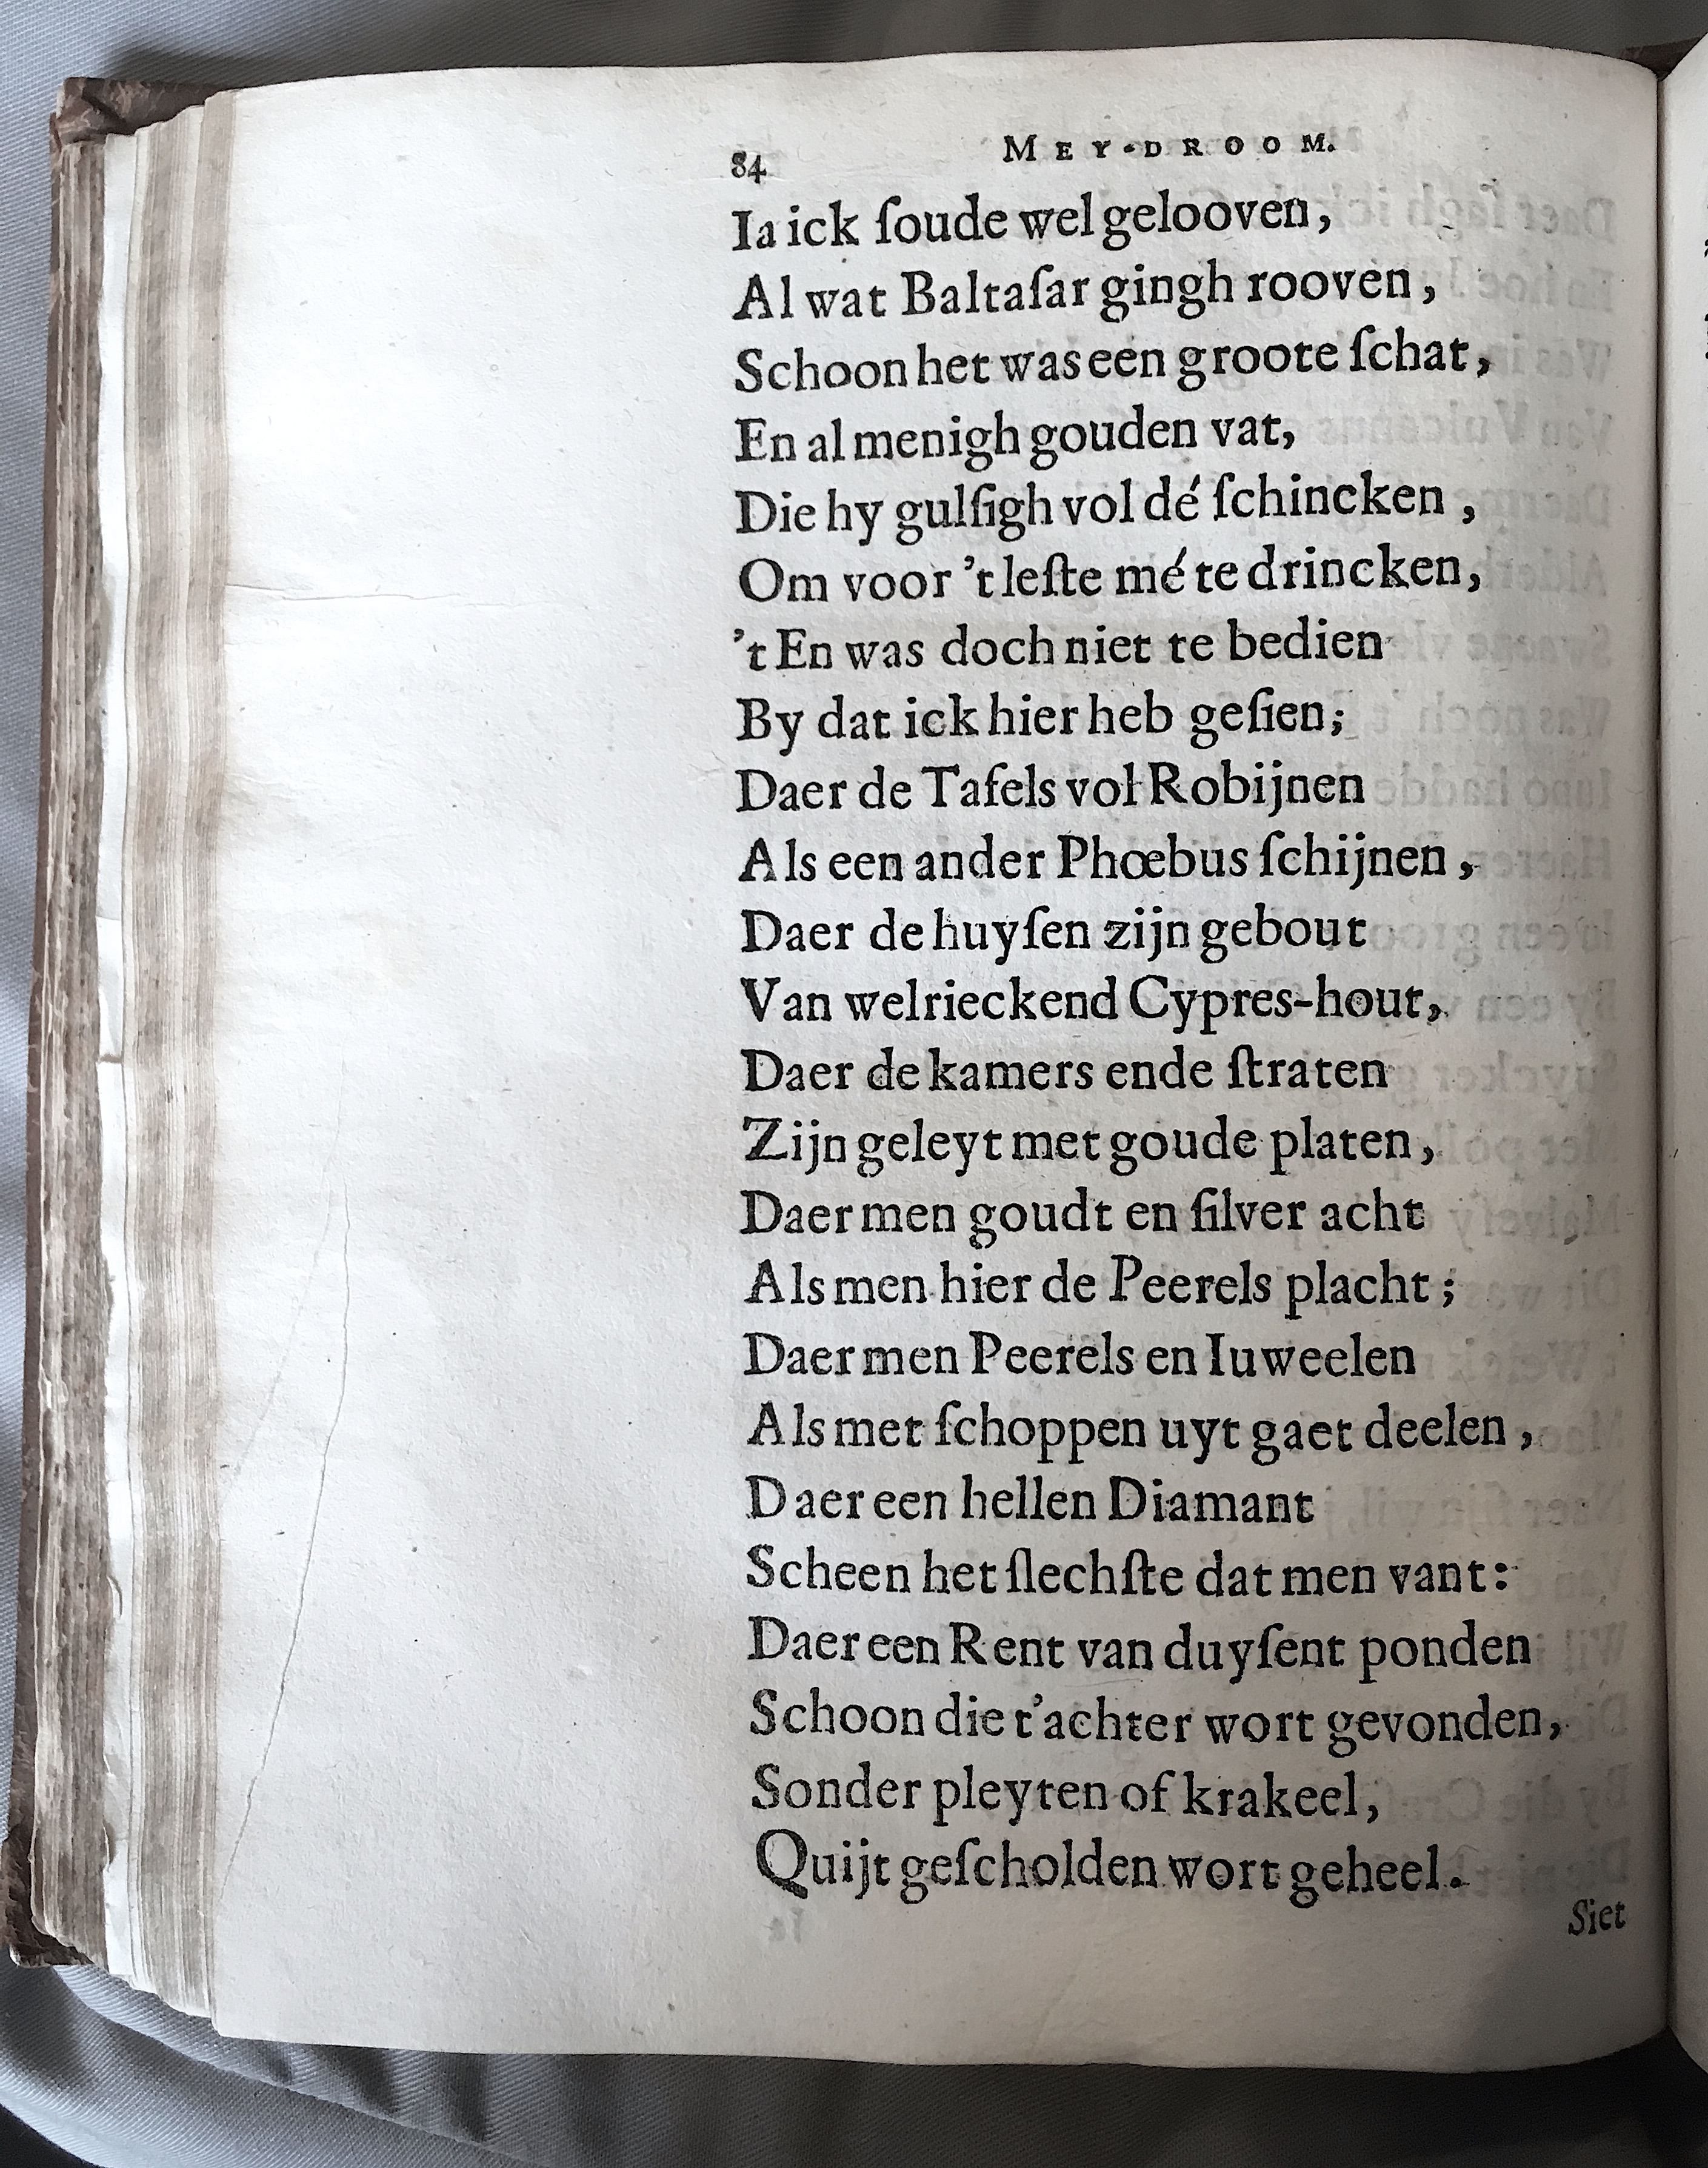 84 MEY-DROOM.
Ia ick ſoude wel gelooven,
Al wat Baltaſar gingh rooven,
Schoon het was een groote ſchat,
En al menigh gouden vat,
Die hy gulſigh vol dé ſchincken,
Om voor 't leſte mé te drincken,
't En was doch niet te bedien
By dat ick hier heb geſien;
Daer de Tafels vol Robijnen
Als een ander Phœbus ſchijnen,
Daer de huyſen zijn gebout
Van welrieckend Cypres-hout,
Daer de kamers ende ſtraten
Zijn geleyt met goude platen,
Daer men goudt en ſilver acht
Als men hier de Peerels placht;
Daer men Peerels en Iuweelen
Als met ſchoppen uyt gaet deelen,
Daer een hellen Diamant
Scheen het ſlechſte dat men vant:
Daer een Rent van duyſent ponden
Schoon die t'achter wort gevonden,
Sonder pleyten of krakeel,
Quijt geſcholden wort geheel.
Siet